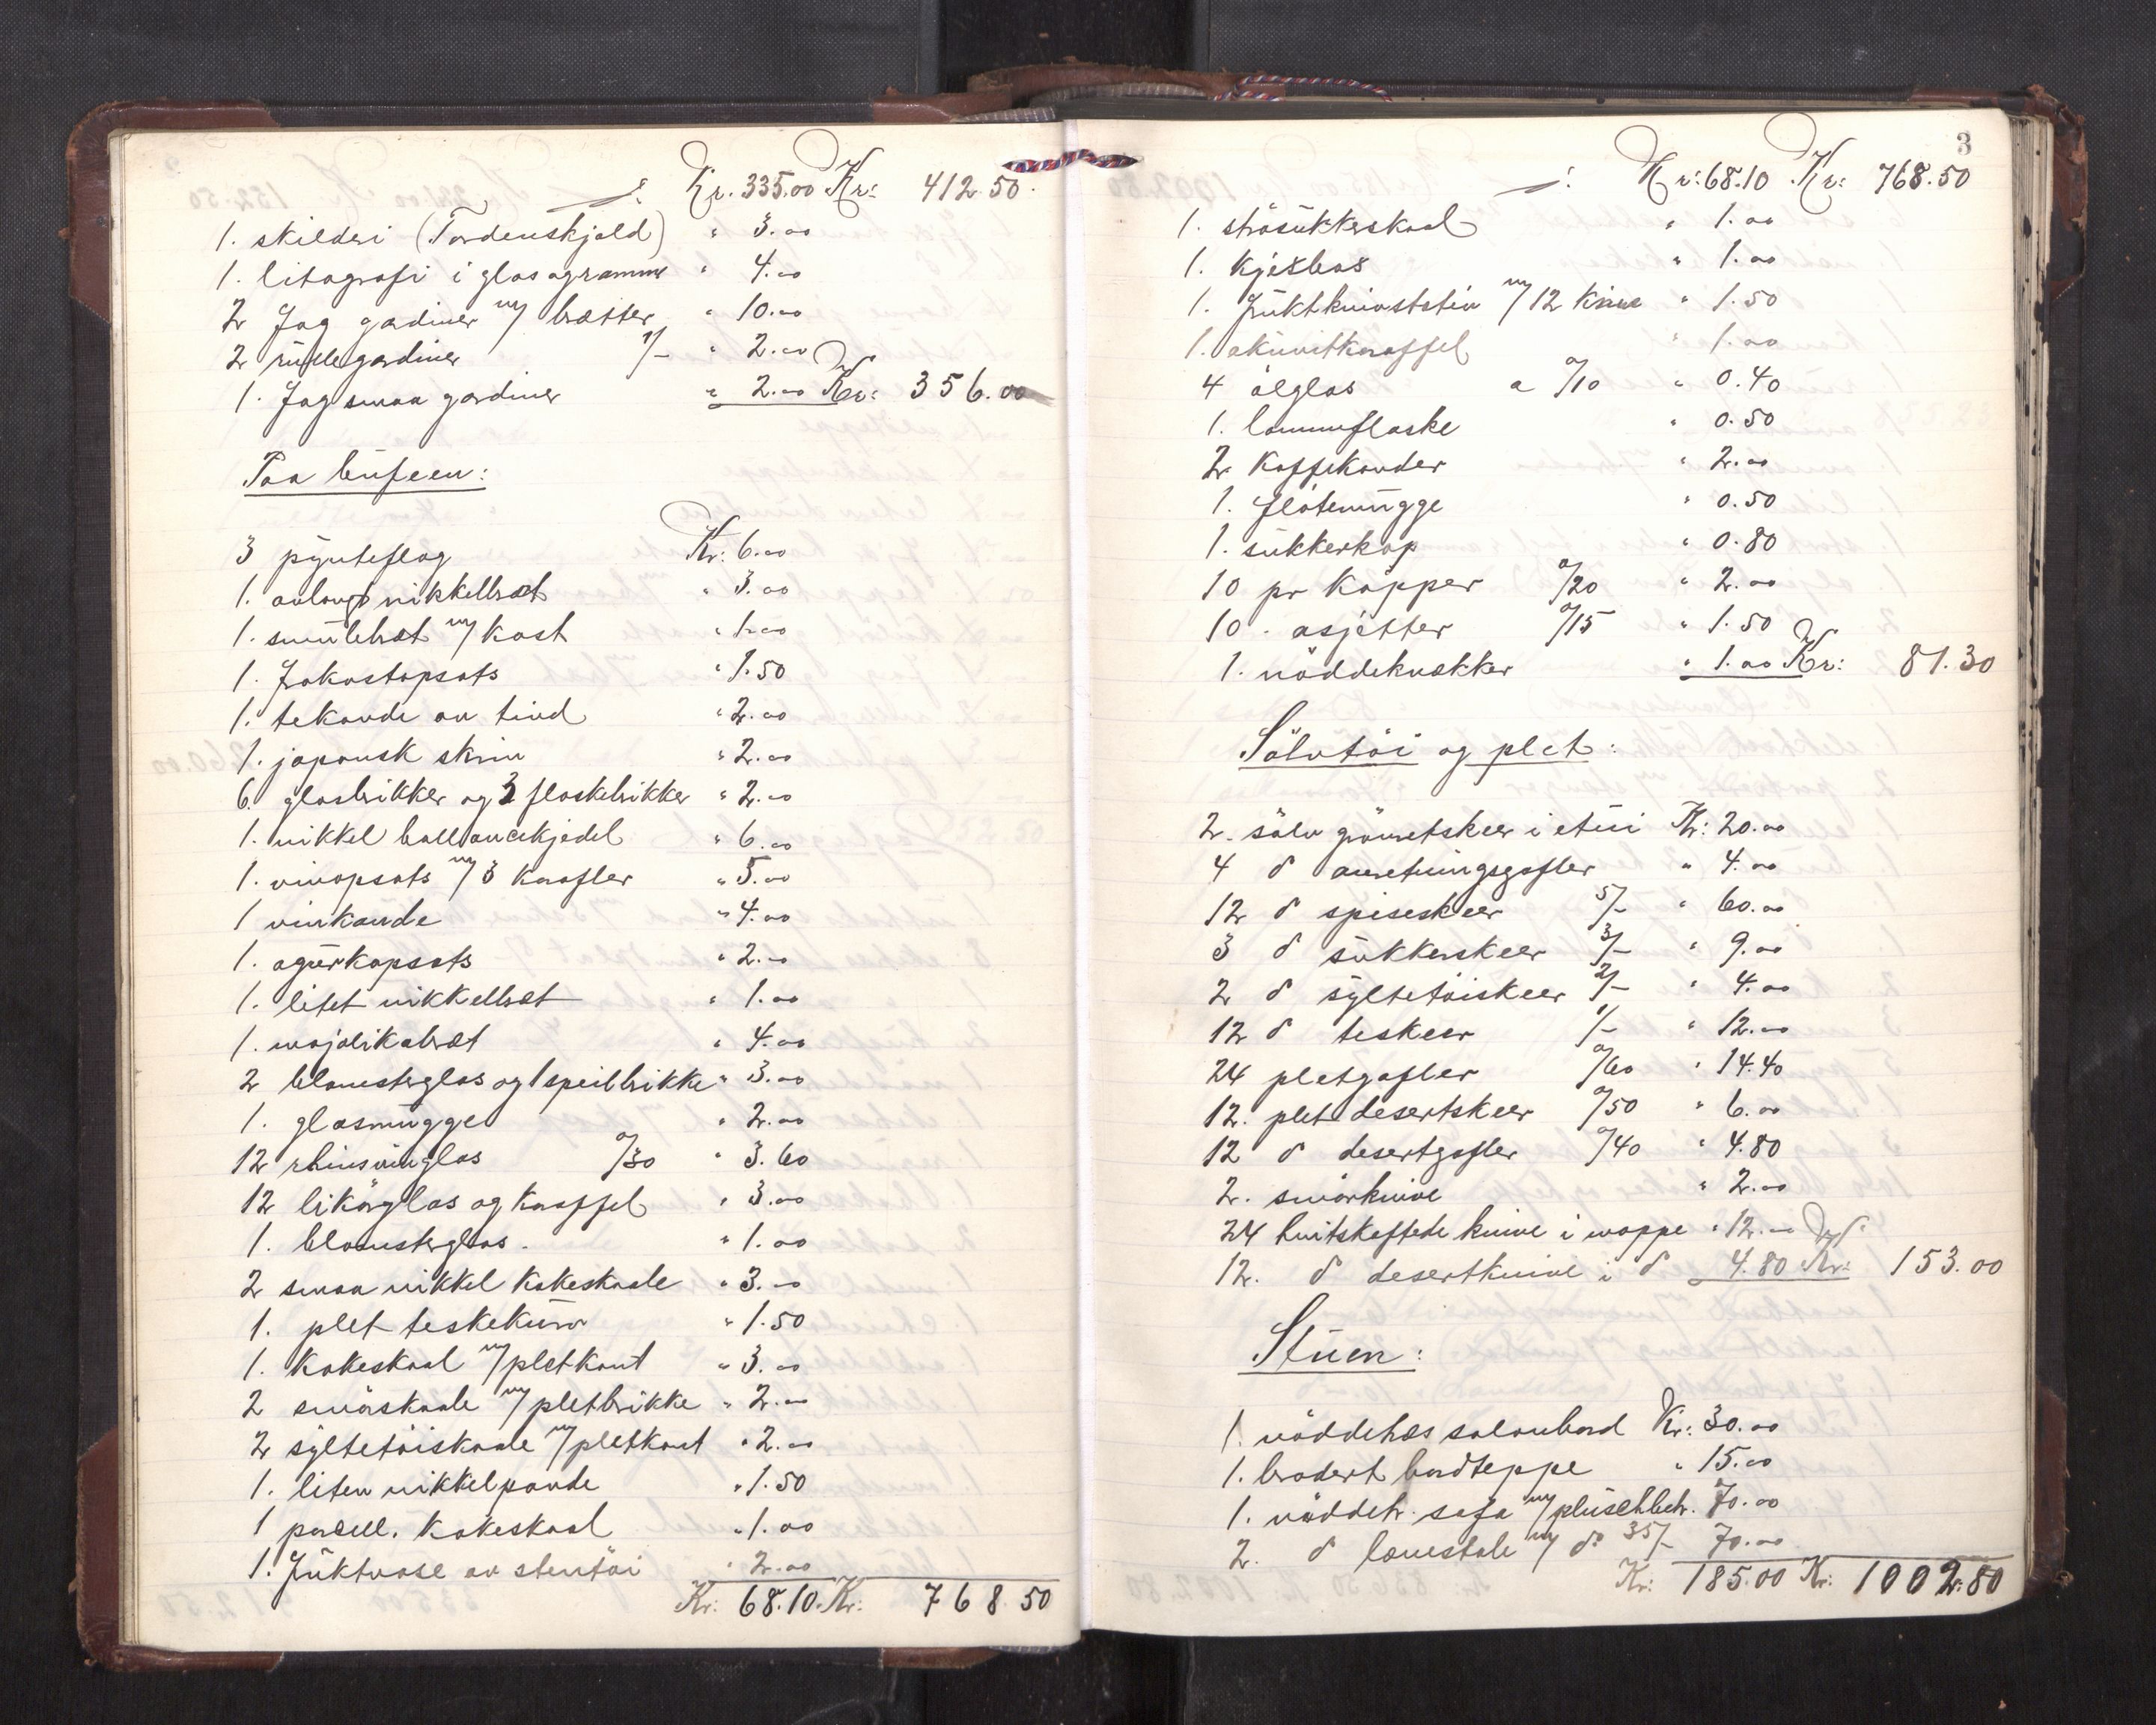 Kr. 335.00 Kr: 412.50
1. skilderi (Tordenskjold) " 3.00
1. litografi i glas og ramme " 4.00
2 fag gardiner m/ brætter " 10.00
2 rullegardiner 1/- " 2.00
1. fag smaa gardiner " 2.00 Kr: 356.00
Paa bufeen:
3 pynteflag Kr: 6.00
1. avlangt nikkelbræt " 3.00
1. smulebræt m/ kost " 1.00
1. frokostopsats " 1.50
1. tekande av tind " 2.00
1. japansk skrin " 2.00
6. glasbrikker og 3 flaskebrikker " 2.00
1. nikkel ballancekjedel " 6.00
1. vinopsats m/ 3 karafler " 5.00
1 vinkande " 4.00
1. agurkopsats " 2.00
1. litet nikkelbræt " 1.00
1. majolikabræt " 4.00
2 blomsterglas og 1 speilbrikke " 3.00
1. glasmugge " 2.00
12 rhinsvinglas a/30 " 3.60
12 likørglas og karaffel " 3.00
1. blomsterglas. " 1.00
2 smaa nikkel kakeskaale " 3.00
1. plet teskekurv " 1.50
1. kakeskaal m/ pletkant " 3.00
2 smörskaale m/ pletbrikke " 2.00
2 syltetöiskaale m/ pletkant " 2.00
1. liten nikkelpande " 1.50
1 porcell. kakeskaal " 1.00
1. fruktvase av stentöi " 2.00
Kr: 68.10. Kr: 768 50
3
Kr: 68.10 Kr: 768.50
1. strösukkerskaal " 1.00
1. kjeksbox " 1.00
1. fruktknivstativ m/ 12 knive " 1.50
1. akuvitkaraffel " 1.00
4 ölglas a a/10 " 0.40
1. lommeflaske " 0.50
2 kaffekander " 2.00
1. flötemugge " 0.50
1. sukkerkop " 0.80
10 pr kopper a/20 " 2.00
10 - asjetter a/15 " 1.50
1. nöddeknækker " 1.00 Kr: 81.30
Sölvtöi og plet:
2. sölv grönnetskeer i etui Kr: 20.00
4 do anretningsgafler " 4.00
12 do spiseskeer 5/- " 60.00
3 do sukkerskeer 3/- " 9.00
2 do syltetöiskeer 2/- " 4.00
12 do teskeer 1/- " 12.00
24 pletgafler a/60 " 14.40
12. plet desertskeer a/50 " 6.00
12 do desertgafler a/40 " 4.80
2. smörknive " 2.00
24 hvitskaftede knive i mappe " 12.00
12. do desertknive i do 4.80 Kr: 153.00
Stuen:
1. nöddetræs salonbord Kr: 30.00
1. brodert bordteppe " 15.00
1. nöddetr. sofa m/ plüschbetr. 70.00
2. do lænestole m/ do 35/- 70.00
Kr: 185.00 Kr: 1002.80